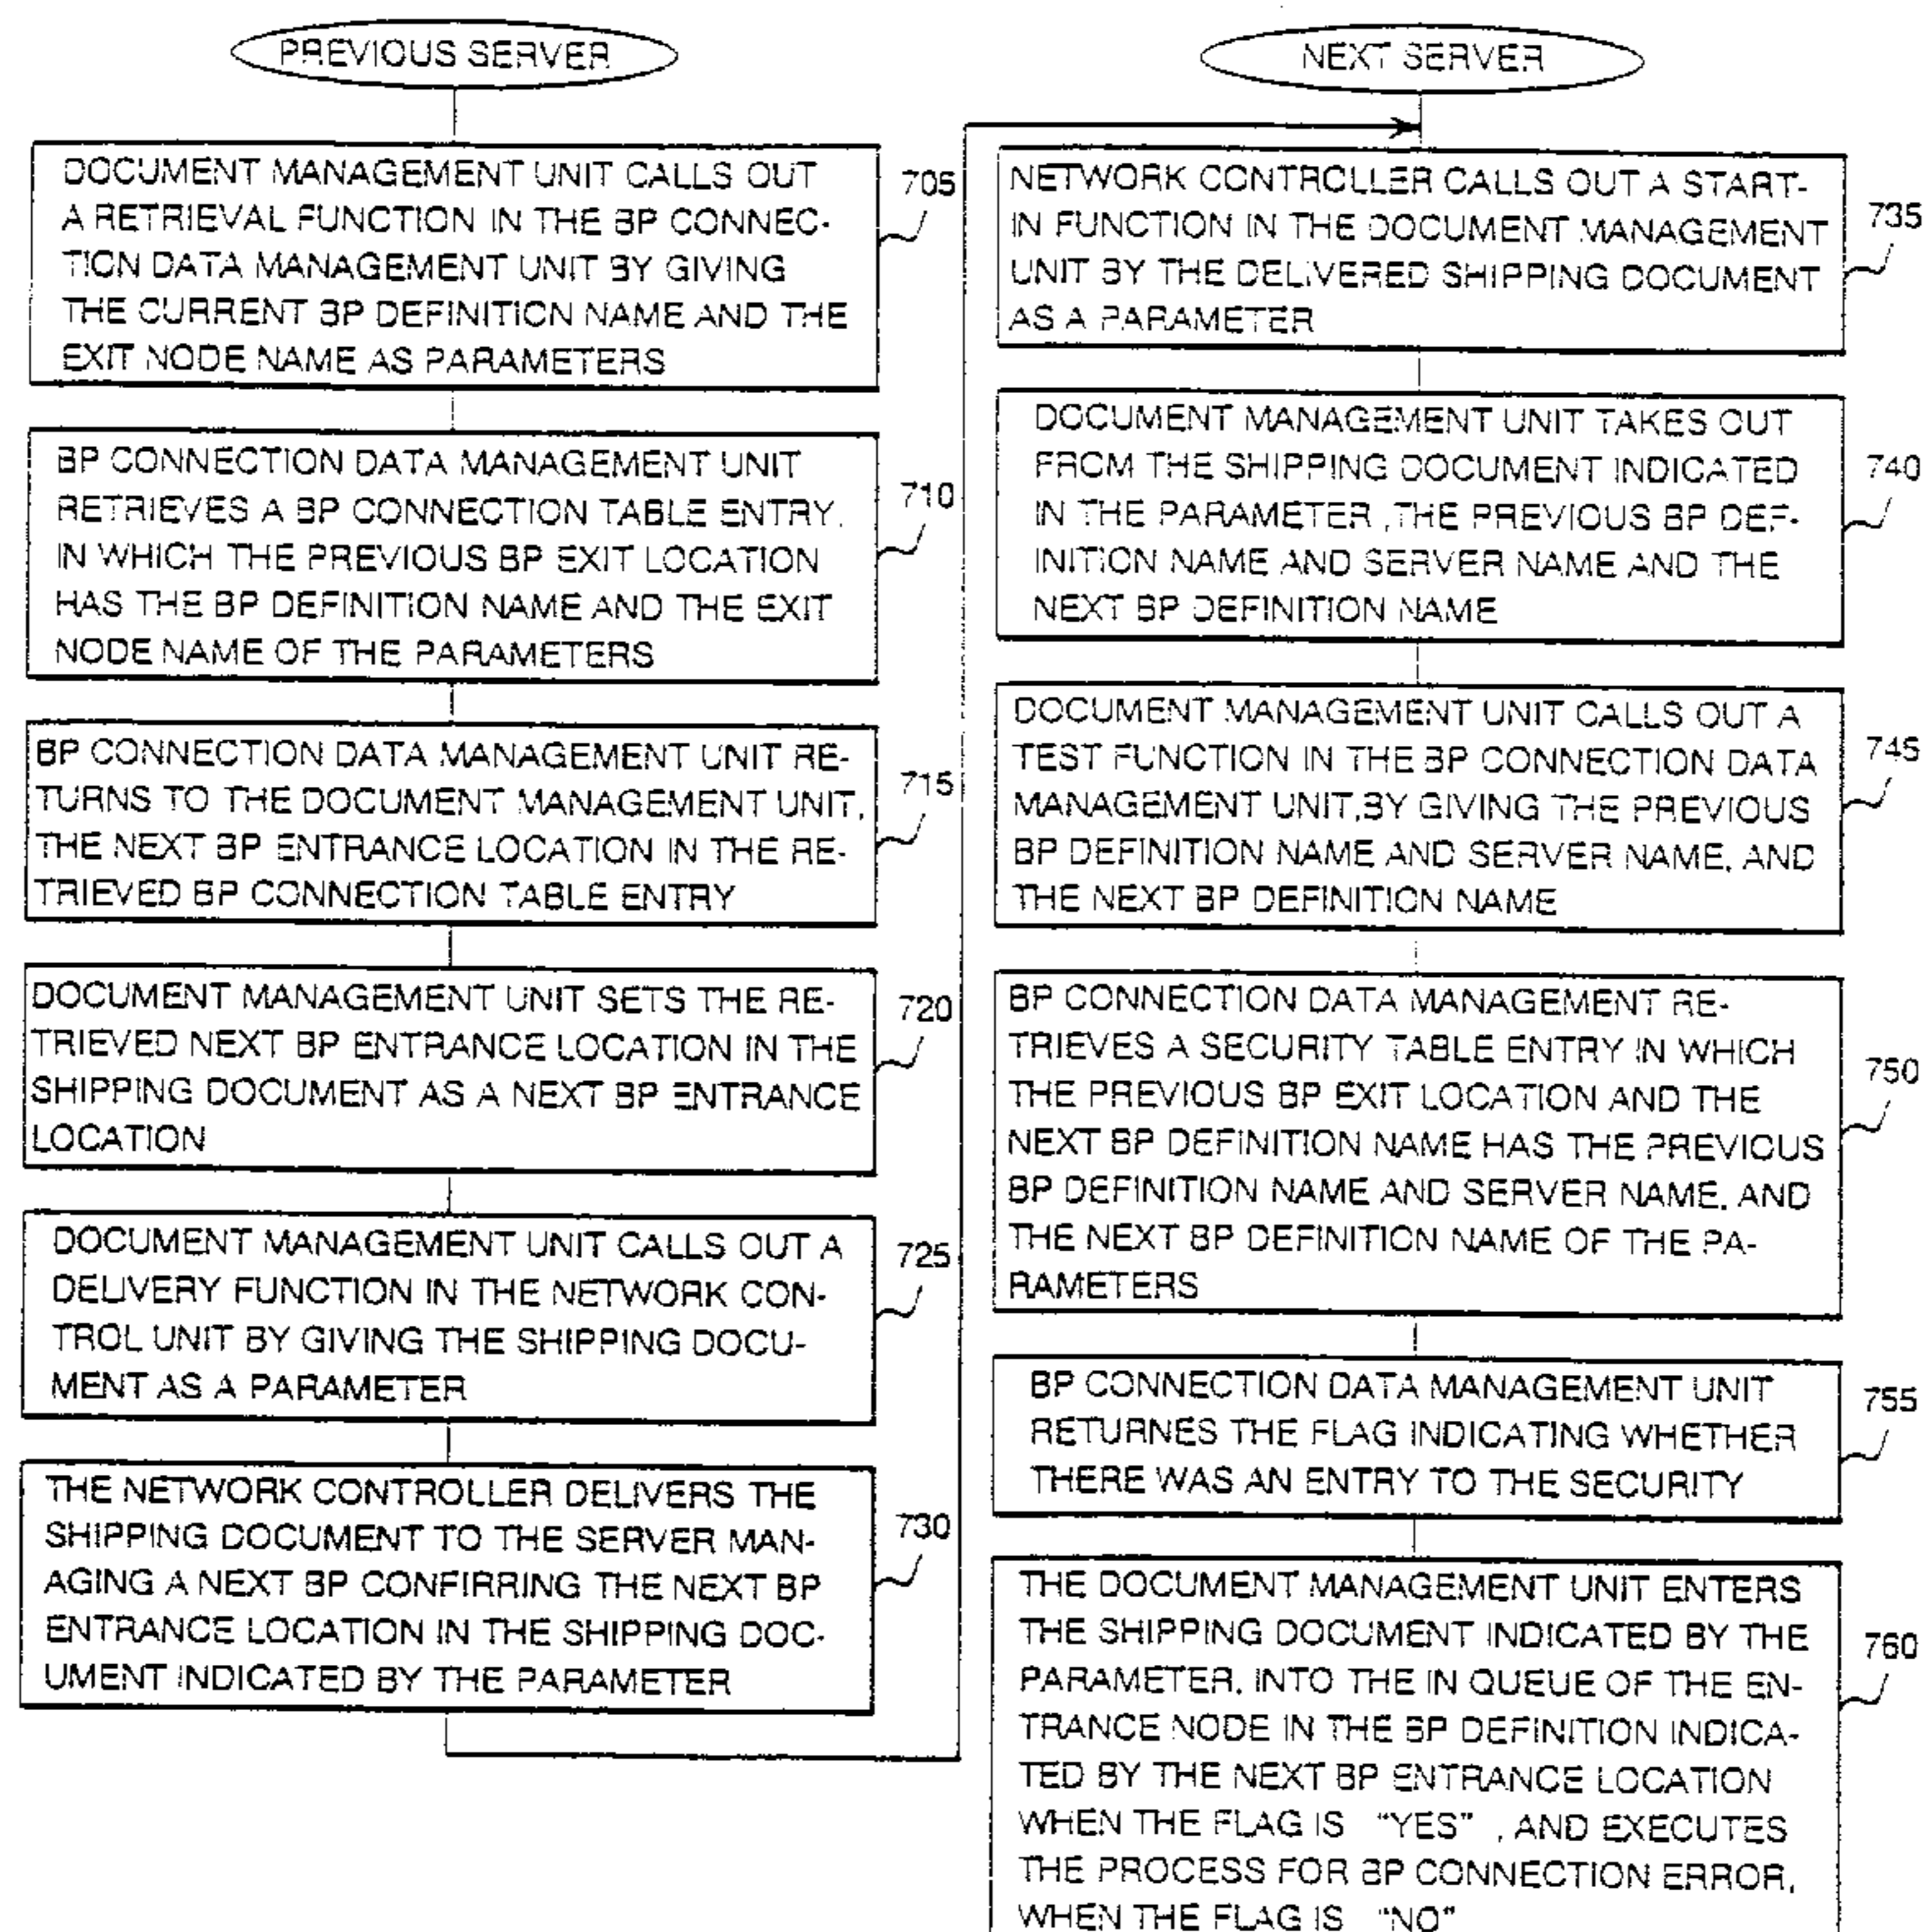 PREVIOUS SERVER
DOCUMENT MANAGEMENT UNIT CALLS OUT
A RETRIEVAL FUNCTION IN THE BP CONNEC-
TION DATA MANAGEMENT UNIT BY GIVING
THE CURRENT BP DEFINITION NAME AND THE
EXIT NODE NAME AS PARAMETERS
705
BP CONNECTION DATA MANAGEMENT UNIT
RETRIEVES A BP CONNECTION TABLE ENTRY,
IN WHICH THE PREVIOUS BP EXIT LOCATION
HAS THE BP DEFINITION NAME AND THE EXIT
NODE NAME OF THE PARAMETERS
710
BP CONNECTION DATA MANAGEMENT UNIT RE-
TURNS TO THE DOCUMENT MANAGEMENT UNIT,
THE NEXT BP ENTRANCE LOCATION IN THE RE-
TRIEVED BP CONNECTION TABLE ENTRY
715
DOCUMENT MANAGEMENT UNIT SETS THE RE-
TRIEVED NEXT BP ENTRANCE LOCATION IN THE
SHIPPING DOCUMENT AS A NEXT BP ENTRANCE
LOCATION
720
DOCUMENT MANAGEMENT UNIT CALLS OUT A
DELIVERY FUNCTION IN THE NETWORK CON-
TROL UNIT BY GIVING THE SHIPPING DOCU-
MENT AS A PARAMETER
725
THE NETWORK CONTROLLER DELIVERS THE
SHIPPING DOCUMENT TO THE SERVER MAN-
AGING A NEXT BP CONFIRRING THE NEXT BP
ENTRANCE LOCATION IN THE SHIPPING DOC-
UMENT INDICATED BY THE PARAMETER
730
NEXT SERVER
NETWORK CONTROLLER CALLS OUT A START-
IN FUNCTION IN THE DOCUMENT MANAGEMENT
UNIT BY THE DELIVERED SHIPPING DOCUMENT
AS A PARAMETER
735
DOCUMENT MANAGEMENT UNIT TAKES OUT
FROM THE SHIPPING DOCUMENT INDICATED
IN THE PARAMETER ,THE PREVIOUS BP DEF-
INITION NAME AND SERVER NAME AND THE
NEXT BP DEFINITION NAME
740
DOCUMENT MANAGEMENT UNIT CALLS OUT A
TEST FUNCTION IN THE BP CONNECTION DATA
MANAGEMENT UNIT,BY GIVING THE PREVIOUS
BP DEFINITION NAME AND SERVER NAME, AND
THE NEXT BP DEFINITION NAME
745
BP CONNECTION DATA MANAGEMENT RE-
TRIEVES A SECURITY TABLE ENTRY IN WHICH
THE PREVIOUS BP EXIT LOCATION AND THE
NEXT BP DEFINITION NAME HAS THE PREVIOUS
BP DEFINITION NAME AND SERVER NAME, AND
THE NEXT BP DEFINITION NAME OF THE PA-
RAMETERS
750
BP CONNECTION DATA MANAGEMENT UNIT
RETURNES THE FLAG INDICATING WHETHER
THERE WAS AN ENTRY TO THE SECURITY
755
THE DOCUMENT MANAGEMENT UNIT ENTERS
THE SHIPPING DOCUMENT INDICATED BY THE
PARAMETER, INTO THE IN QUEUE OF THE EN-
TRANCE NODE IN THE BP DEFINITION INDICA-
TED BY THE NEXT BP ENTRANCE LOCATION
WHEN THE FLAG IS "YES" , AND EXECUTES
THE PROCESS FOR BP CONNECTION ERROR,
WHEN THE FLAG IS "NO"
760